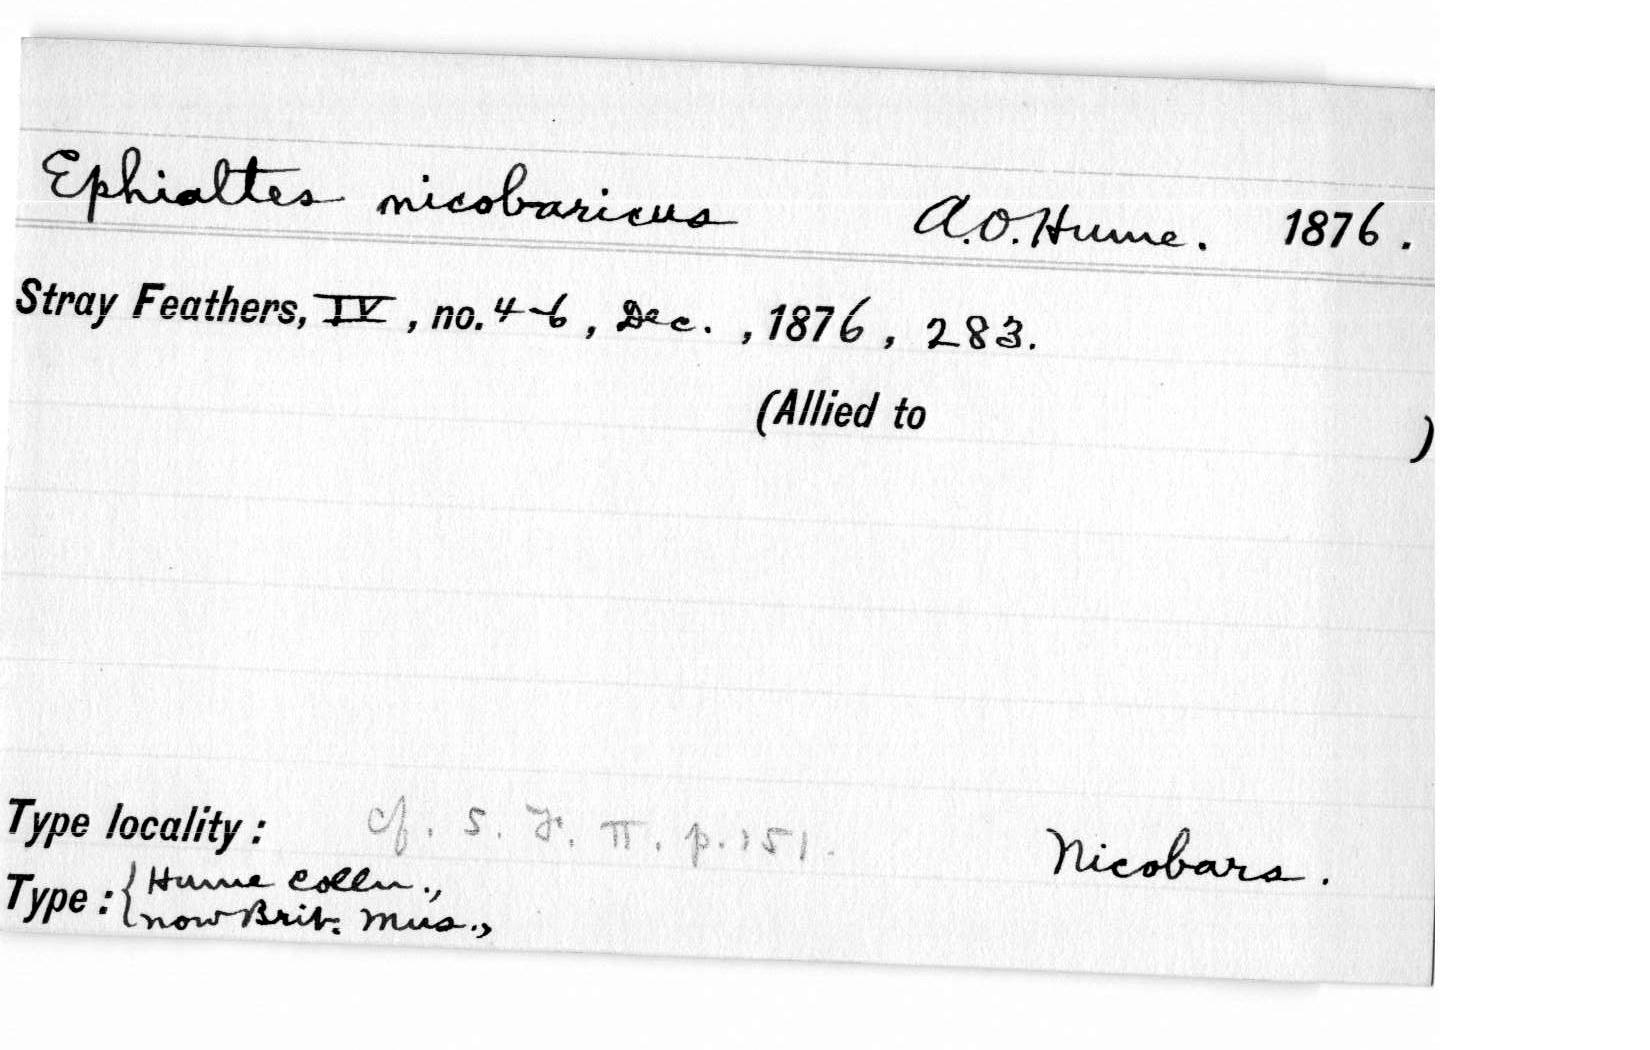 Ephialtes nicobaricus A.O. Hume. 1876.
Stray Feathers, IV, no. 4-6, Dec., 1876, 283.
(Allied to )
Type locality: cf. S. F. II. p. 151. Nicobars.
Type: { Hume colln.,
now Brit. Mus.,